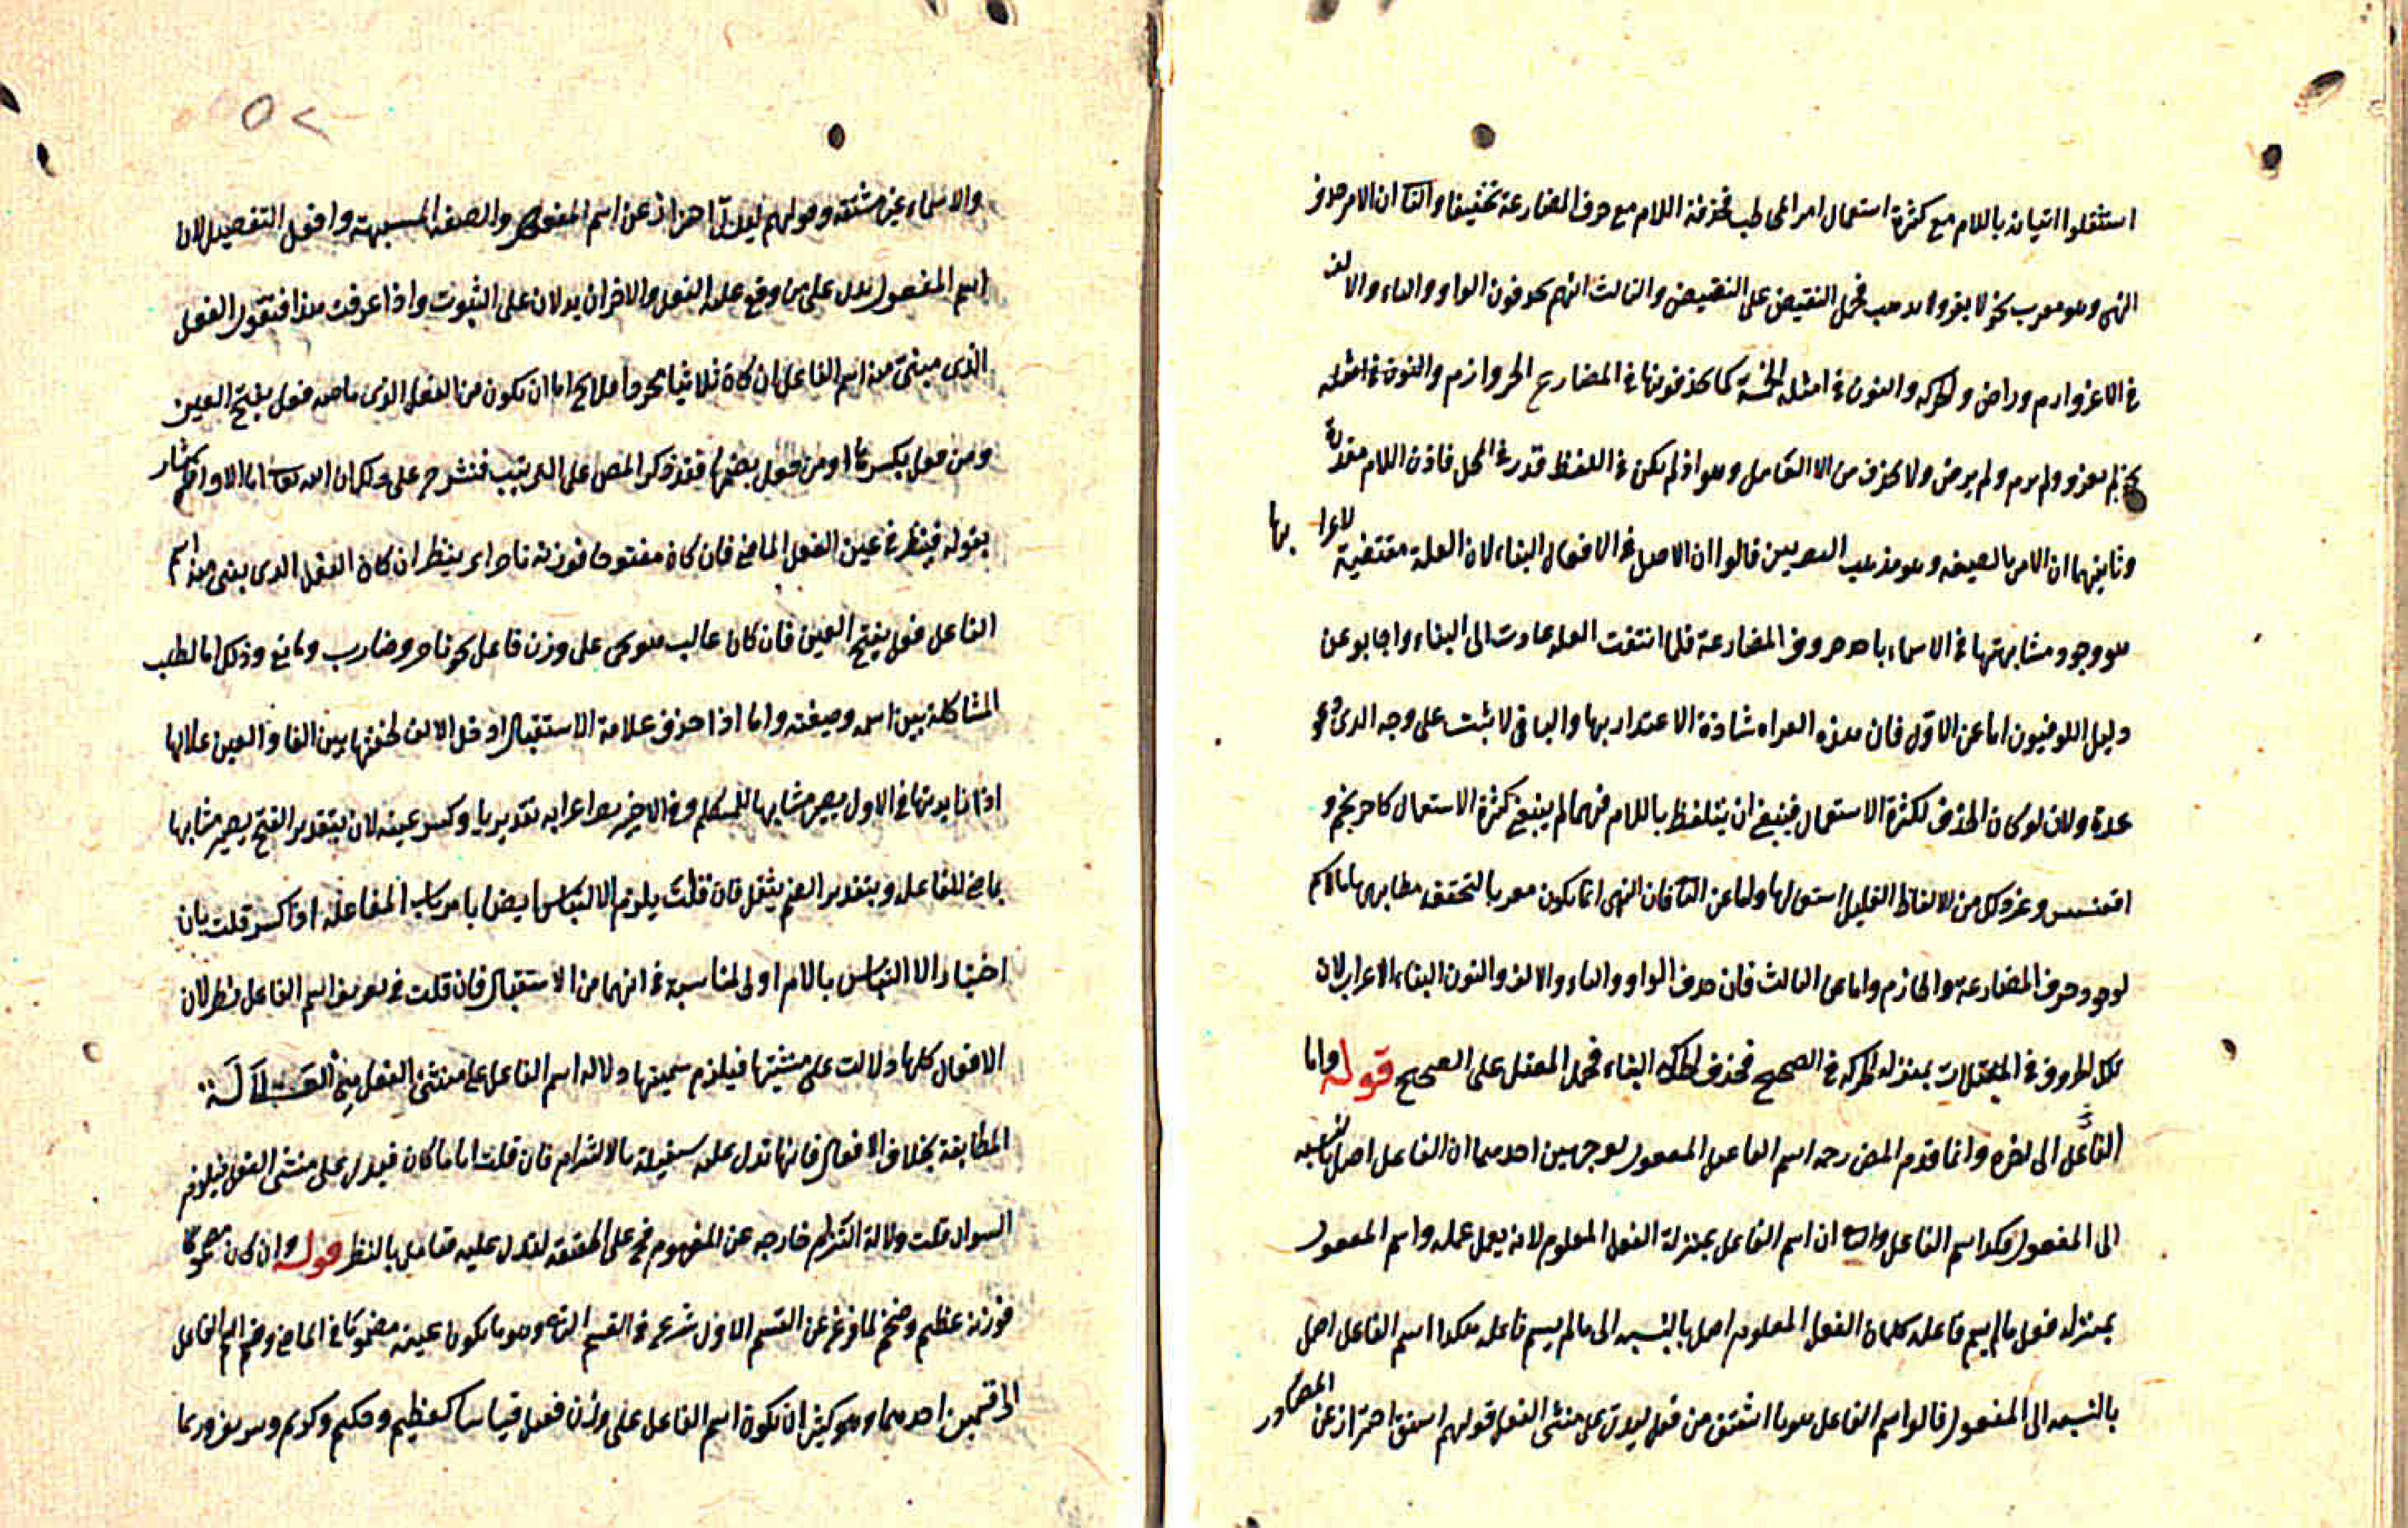 استثقلوا اتيانه باللام مع كثرة استعمال امر المخاطب فحذفة اللام مع حرف المضارعة تخفيفا والثا ان الامر حذو
النهى وهو معرب نحو لا يغزوا فحمل النقيض على النقيض والثالث انهم يحذفون الواو والياء والالف
فى اغز وارم وراض والحركه والنون فى امثله الخمسة كما يحذفونها فى المضارع الجوازم والنون فى امثله
لم يغزو ولم يرم ولم يرض ولا يحذف من الا العامل وهو اذ لم يكن فى اللفظ قدر فى المحل فاذن اللام مقدرة
وثانيهما ان الامر بالصيغه وهو مذهب البصريين قالوا ان الاصل فى الافعال البناء لان العلة مقتضية لاعرابها
هو وجود مشابهتها فى الاسماء باحد حروف المضارعة فلما انتفت العله عادت الى البناء واجابو عن
دليل الكوفيون اما عن الاول فان هذه القراه شاذة الاعتداد بها والباقى لا يثبت على وجه الذى هو
عدة ولانه لو كان الحذف لكثرة الاستعمال فينبغى ان يتلفظ باللام فيما لم ينبغى كثرة الاستعمال كاحرنجم و
اقعنسس وغزو كل من الالفاظ القليل استعمالها واما عن الثا فان النهى انما يكون معربا لتحقق
لوجود حرف المضارعة والجازم واما عن الثالث فان حذف الواو والياء والالف والنون البناء لا الاعراب لان
تلك الحروف فى المعتلات بمنزله الحركه فى الصحيح فحذف الحركه البناء فحمل المعتل على الصحيح قوله واما
الفاعل الى اخره وانما قدم المص رحمه اسم الفاعل المفعول لوجهين احدهما ان الفاعل اصل بالنسبه
الى المفعول فكذا اسم الفاعل والثا ان اسم الفاعل بمنزلة الفعل المعلوم لانه يعمل عمله واسم المفعول
بمنزله فعل ما لم يسم فاعله فكما ان الفعل المعلوم اصل بالنسبه الى ما لم يسم فاعله هكذا اسم الفاعل اصل
بالنسبه الى المفعول قالوا اسم الفاعل هو ما اشتق من فعل ليدل على منشئ الفعل قولهم اشتق احتراز عن المصادر
٥٢
والاسماء غير مشتقه وقولهم ليدل احتراز عن اسم المفعول والصفه المشبهة وافعل التفضيل لان
اسم المفعول يدل على من وقع عليه الفعل والاخران يدلان على الثبوت واذا عرفت هذا فنقول الفعل
الذى مبنى منه اسم الفاعل ان كان ثلاثيا مجردا فلا يخ اما ان يكون من الفعل الذى ماضيه فعل بفتح العين
ومن فعل بكسرها او من فعل بضمها فقد ذكر المص على الترتيب فنشرح على ذلك ان الله تعا اما الاول فاشار
بقوله فينظر فى عين الفعل الماضى فان كان مفتوحا فوزنه ناصر اى ينظر ان كان الفعل الذى يبنى منه اسم
الفاعل فعل بفتح العين فان كان غالب هو يجى على وزن فاعل نحو ناصر وضارب ومانع وذلك اما لطلب
المشاكلة بين اسمه وصيغته واما اذا حذف علامة الاستقبال ادخل الالف لخفتها بين الفا والعين
اذا زايدتها فى الاول يصير مشابها للمتكلم وفى الاخر يصير اعرابه تقديريا وكسر عينه لان بتقدير الفتح يصير مشابها
بماضى المفاعله وبتقدير الضم يثقل فان قلت يلزم الالتباس ايضا بامر باب المفاعله اذا كسر قلت بان
اختيار الا التباس بالامر اولى لمناسبة فى انهما من الاستقبال فان قلت فى تعريف اسم الفاعل نظر لان
الافعال كلها دلالت على منشئها فيلزم تسميتها دلاله اسم الفاعل على منشئ الفعل
المطابقة بخلاف الافعال فانها تدل عليه بالالتزام فان قلت اما ما كان فيدل على منشئ الفعل فيلزم
السوال قلت دلالة التزام خارجه عن المفهوم فتأمل بالنظر قوله وان كان مضموما
فوزنه عظيم وضخم لما فرغ عن القسم الاول شرع فى القسم الثا وهو ما يكون عينه مضموما فى الماضى وقسم اسم الفاعل
الى قسمين احدهما وهو كثير ان يكون اسم الفاعل على وزن فعيل قياسا كعظيم وحكيم وكريم وشريف وربما